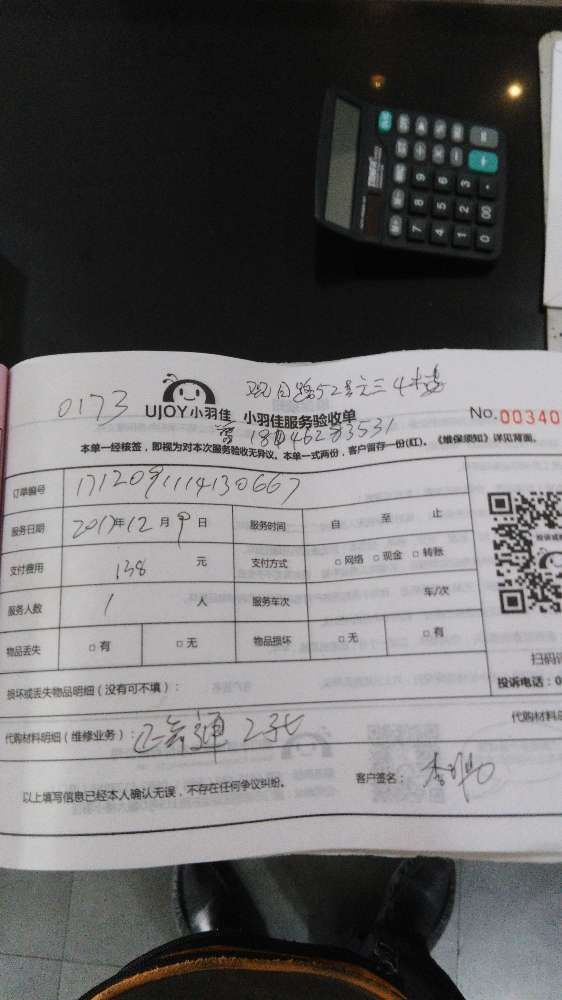 0173
UJOY小羽佳 小羽佳服务验收单
No.00340
本单一经核签，即视为对本次服务验收无异议。本单一式两份，客户留存一份(红)。《维保须知》详见背面。
订单编号 1712091114130667
服务日期 2017年12月9日 服务时间 自 至 止
支付费用 138 元 支付方式 □网络 □现金 □转账
服务人数 1 人 服务车次 车/次
物品丢失 □有 □无 物品损坏 □无 □有
扫码
投诉电话：0
损坏或丢失物品明细（没有可不填）：
代购材料明细（维修业务）：
代购材料
以上填写信息已经本人确认无误，不存在任何争议纠纷。 客户签名：